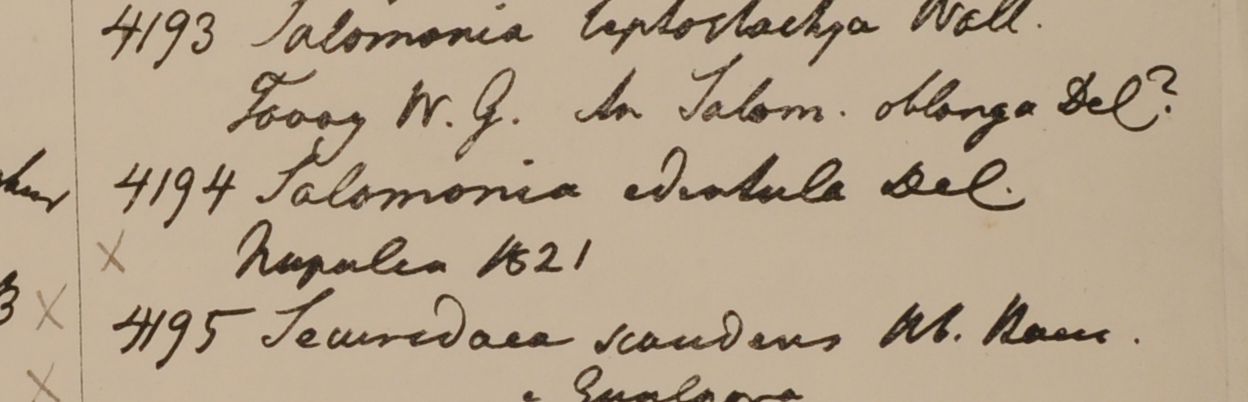 4193 Salomonia leptostachya Wall.
Tavoy W. G. An Salom. oblonga Del?
4194 Salomonia edentula Del.
X Napalea 1821
X 4195 Securidaca scandens Hb. Ham.
X